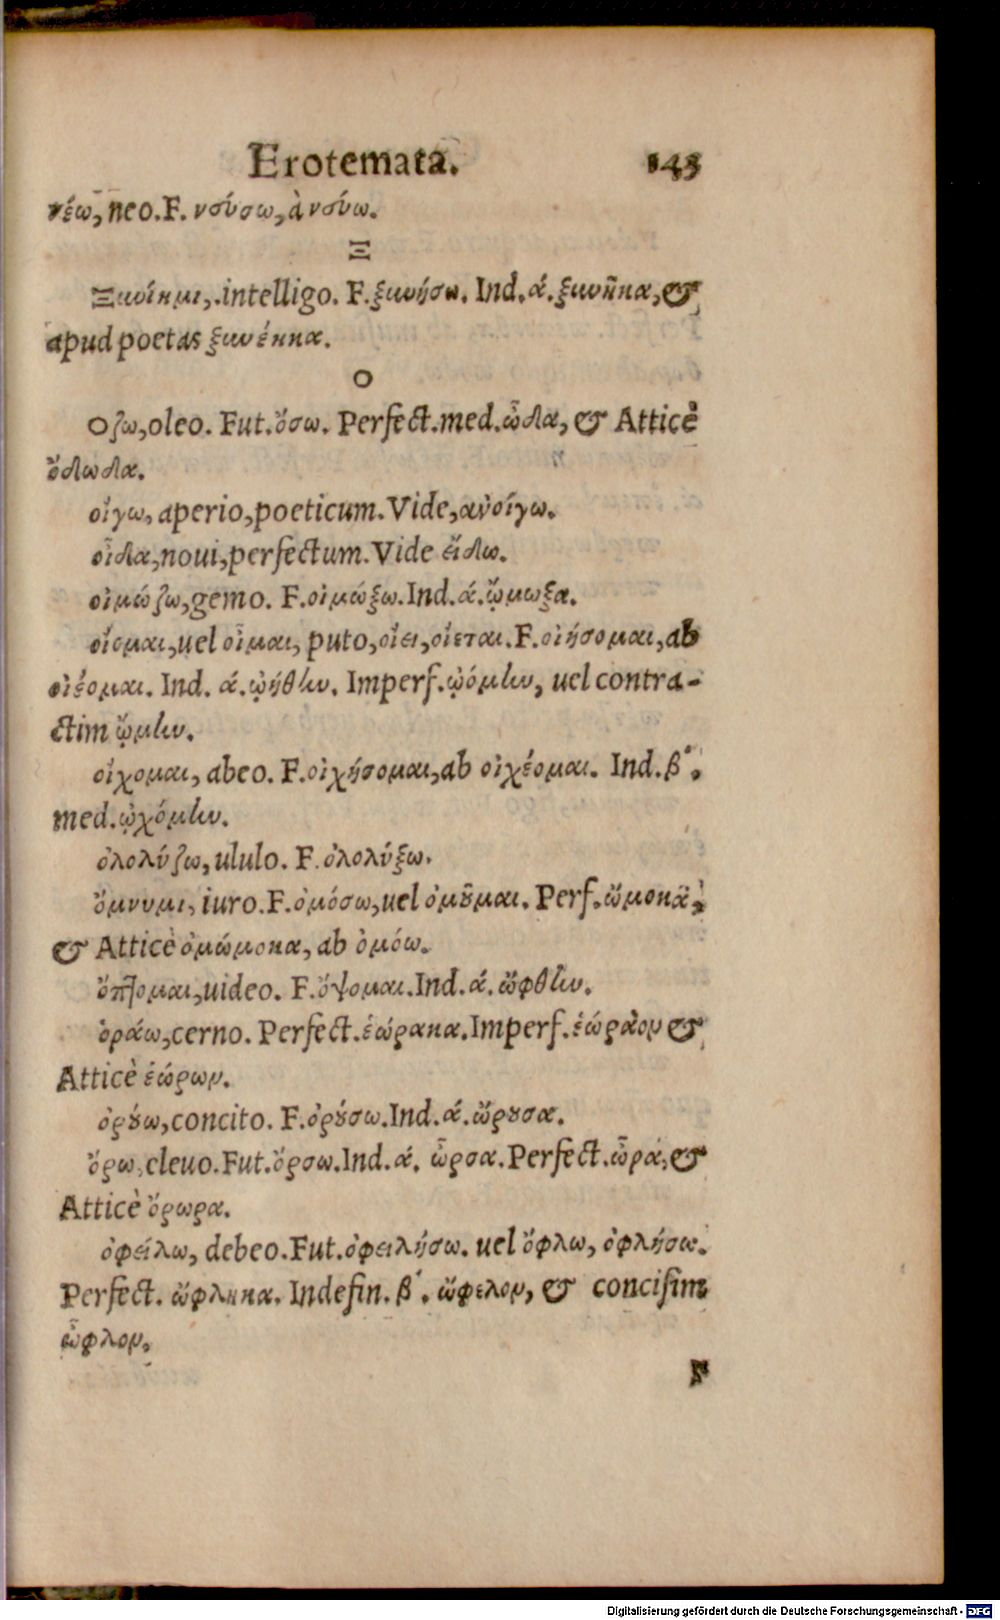 Erotemata. 143
νέω, neo. F. νεύσω, à νεύω.
Ξ
Ξυνίημι, .intelligo. F. ξυνήσω. Ind. ά. ξυνῆκα, &
apud poetas ξυνέηκα.
Ο
Οζω, oleo. Fut. ὄσω. Perfect. med. ὦδα, & Atticè
ὄδωδα.
οἴγω, aperio, poeticum. Vide, ανοίγω.
οἶδα, noui, perfectum. Vide εἴδω.
οἰμώζω, gemo. F. οἰμώξω. Ind. ά. ᾤμωξα.
οἴομαι, uel οἶμαι, puto, οἴει, οἴεται. F. οἰήσομαι, ab
οἰέομαι. Ind. ά. ᾠήθην. Imperf. ᾠόμην, uel contra-
ctim ᾤμην.
οἴχομαι, abeo. F. οἰχήσομαι, ab οἰχέομαι. Ind. β΄.
med. ᾠχόμην.
ὀλολύζω, ululo. F. ὀλολύξω.
ὄμνυμι, iuro. F. ὀμόσω, uel ὀμοῦμαι. Perf. ὤμοκα,
& Atticè ὀμώμοκα, ab ὀμόω.
ὄπτομαι, uideo. F. ὄψομαι. Ind. ά. ὤφθην.
ὁράω, cerno. Perfect. ἑώρακα. Imperf. ἑώραον &
Atticè ἑώρων.
ὀρούω, concito. F. ὀρούσω. Ind. ά. ὤρουσα.
ὄρω, eleuo. Fut. ὄρσω. Ind. ά. ὦρσα. Perfect. ὦρα, &
Atticè ὄρωρα.
ὀφείλω, debeo. Fut. ὀφειλήσω. uel ὄφλω, ὀφλήσω.
Perfect. ὤφληκα. Indefin. β΄. ὤφελον, & concisim
ὦφλον.
F
Digitalisierung gefördert durch die Deutsche Forschungsgemeinschaft - DFG